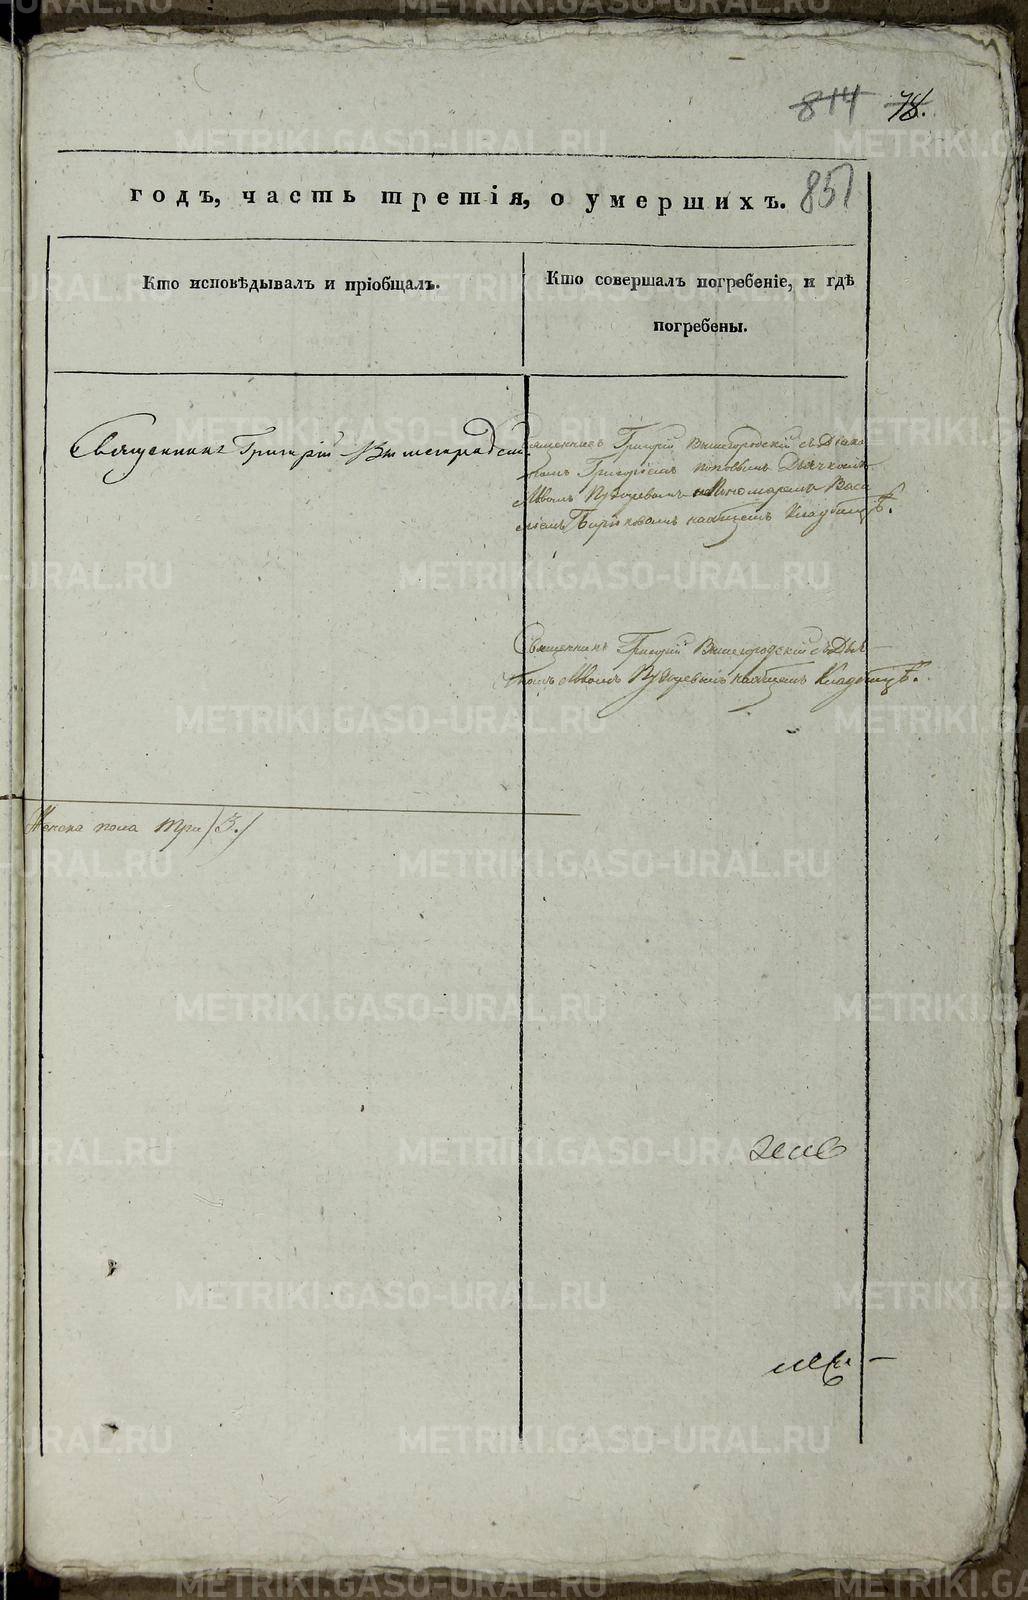 814 78.
годъ, часть третія, о умершихъ. 851
Кто исповѣдывалъ и пріобщалъ.
Кто совершалъ погребеніе, и гдѣ
погребены.
Священникъ Григорій Вышегородскій
Священникъ Григорій Вышегородскій съ Діако
номъ Григоріемъ Поповымъ Дьячкомъ
Иваномъ и Пономаремъ Васи
ліемъ наобщемъ Кладбищѣ.
Священникъ Григорій Вышегородскій съ Дья
наобщемъ Кладбищѣ.
Женска пола три /3./
METRIKI.GASO-URAL.RU